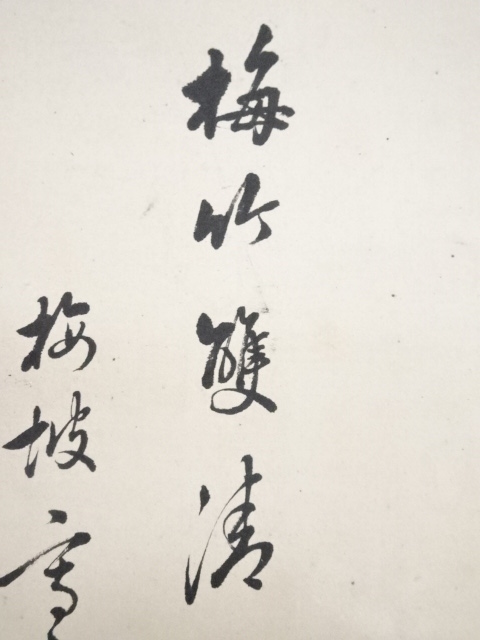 梅竹雙清
梅坡寫